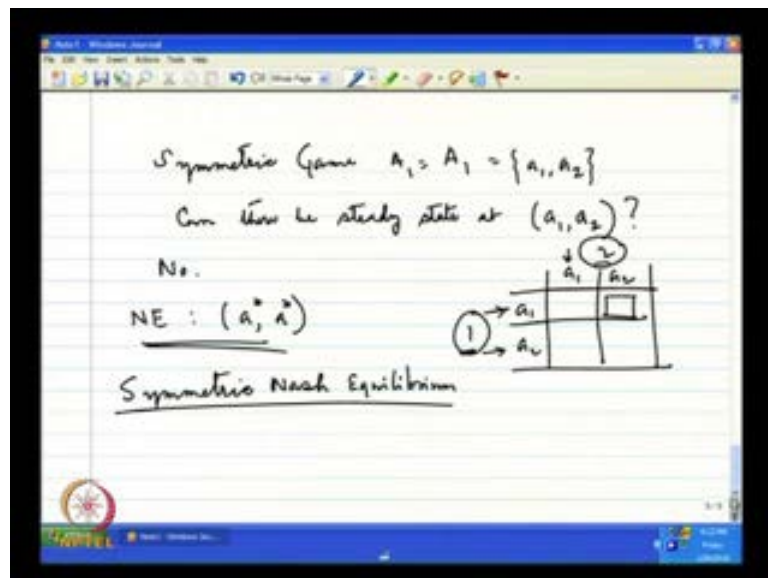 Note1 - Windows Journal
File Edit View Insert Actions Tools Help
Symmetric Game A₁ = A₁ = {a₁, a₂}
Can there be steady state at (a₁, a₂)?
No.
2
a₁ a₂
NE : (a*, a*)
1
a₁
a₂
Symmetric Nash Equilibrium
NPTEL